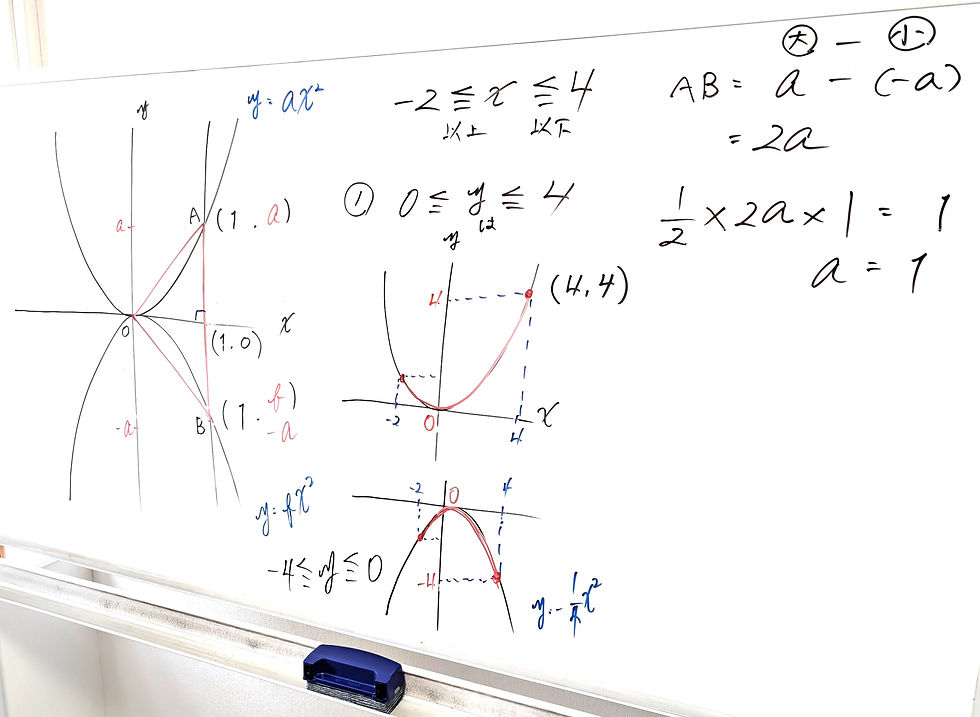 y = ax²
y
a
A (1. a)
O
x
(1.0)
-a
B (1. b)
-a
y = bx²
-2 ≦ x ≦ 4
以上 以下
① 0 ≦ y ≦ 4
は
y
4
(4.4)
-2
O
4
x
-2
O
4
-4
-4 ≦ y ≦ 0
y = -1/4 x²
大 - 小
AB = a - (-a)
= 2a
1/2 × 2a × 1 = 1
a = 1